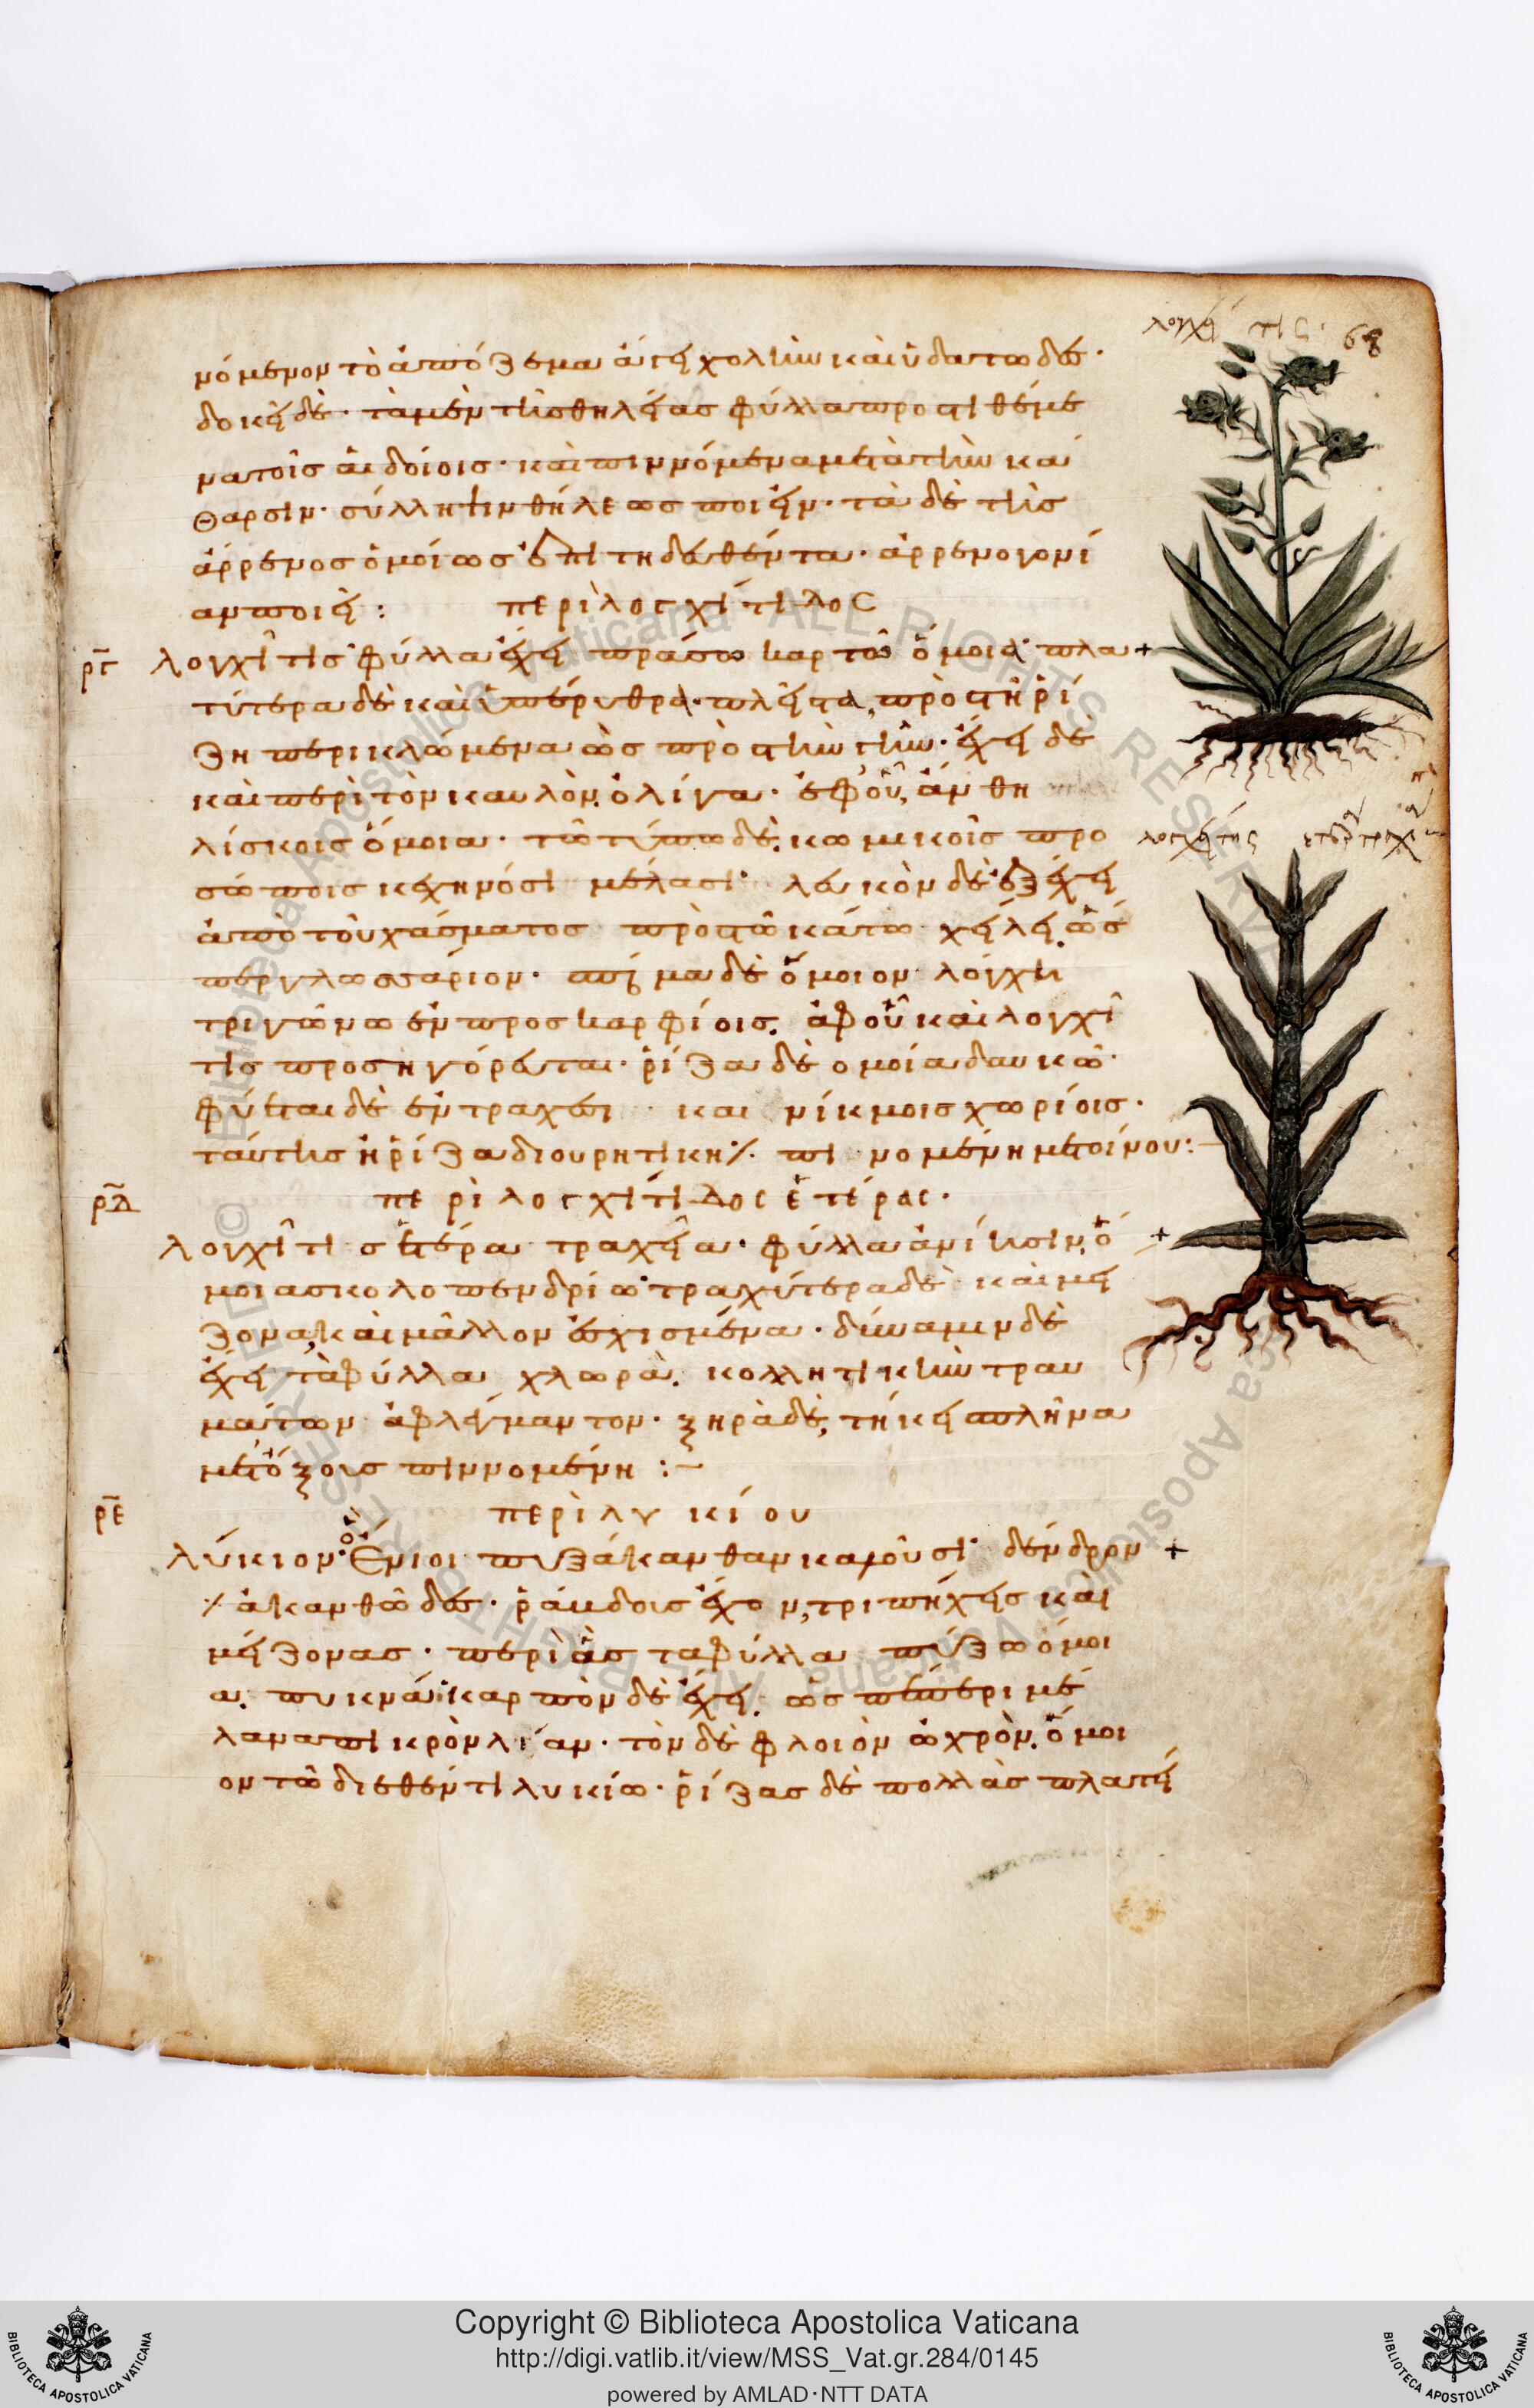 λογχί τις · 68
νόμενον τὸ ἀπόζεμα ἄγει χολὴν καὶ ὑδατώδες·
δοκεῖ δὲ· τὰ μὲν τῆς θηλείας φύλλα προστιθέμε
να τοῖς αἰδοίοις· καὶ πιννόμενα μετὰ τὴν κά
θαρσιν· σύλληψιν θήλεως ποιεῖν· τὰ δὲ τῆς
ἄρρενος ὁμοίως ἐπιτηδευθέντα· ἀρρενογονί
αν ποιεῖ:
περὶ λογχίτιδος
ργ
λογχῖτις φύλλα ἔχει πράσω καρτῶ ὅμοια· πλα +
τύτερα δὲ καὶ ὑπέρυθρα· πλεῖστα, πρὸς τῆ ῥί
ζη περικλώμενα ὡς πρὸς τὴν γῆν· ἔχει δὲ
καὶ περὶ τὸν καυλὸν, ὀλίγα· ἐφ' οὗ, ἄνθη
λίσκοις ὅμοια· τῶ τύπω δὲ, κωμικοῖς προ
σώποις κεχηνόσι μέλασι· λευκὸν δέ ἐξέχει
ἀπὸ τοῦ χάσματος πρὸς τῶ κάτω χείλει, ὥσ
περ γλωσσάριον· σπέρμα δὲ ὅμοιον λόγχη
τριγώνω ἐν προσκαρφίοις. ἀφ' οὗ καὶ λογχῖ
τις προσηγόρευται· ῥίζα δὲ ομοία δαυκῶ·
φύεται δὲ ἐν τραχέσι και νίκμοις χωρίοις·
ταύτης ἡ ῥίζα διουρητικὴ· πινομένη μετ' οίνου:
ρδ
περὶ λογχίτιδος ἑτέρας·
λογχῖτις ἑτέρα τραχεῖα· φύλλα ἀνίησιν, ὅ +
μοια σκολοπενδρίω· τραχύτερα δὲ καὶ μεί
ζονα, καὶ μᾶλλον ἐσχισμένα· δύναμιν δὲ
ἔχει τὰ φύλλα χλωρὰ. κολλητικὴν τραυ
μάτων ἀφλέγμαντον· ξηρὰ δὲ, τήκει σπλῆνα
μετ' ὄξους πιννομένη :~
ρε
περὶ λυκίου
λύκιον· ὃ ἔνιοι πυξάκανθαν καλοῦσι· δένδρον +
ἀκανθῶδες· ῥάβδοις ἔχον, τριπήχεις καὶ
μείζονας· περὶ ἃς τα φύλλα πύξω όμοι
α. πυκνά· καρπὸν δὲ ἔχει, ὡς πέπερι μέ
λανα πικρὸν λίαν· τὸν δὲ φλοιὸν ὠχρὸν. ὅμοι
ον τῶ διεθέντι λυκίω· ῥίζας δὲ πολλὰς πλατεί
λογχήτης
Copyright © Biblioteca Apostolica Vaticana
http://digi.vatlib.it/view/MSS_Vat.gr.284/0145
powered by AMLAD·NTT DATA
BIBLIOTECA APOSTOLICA VATICANA
BIBLIOTECA APOSTOLICA VATICANA
© Biblioteca Apostolica Vaticana ALL RIGHTS RESERVED